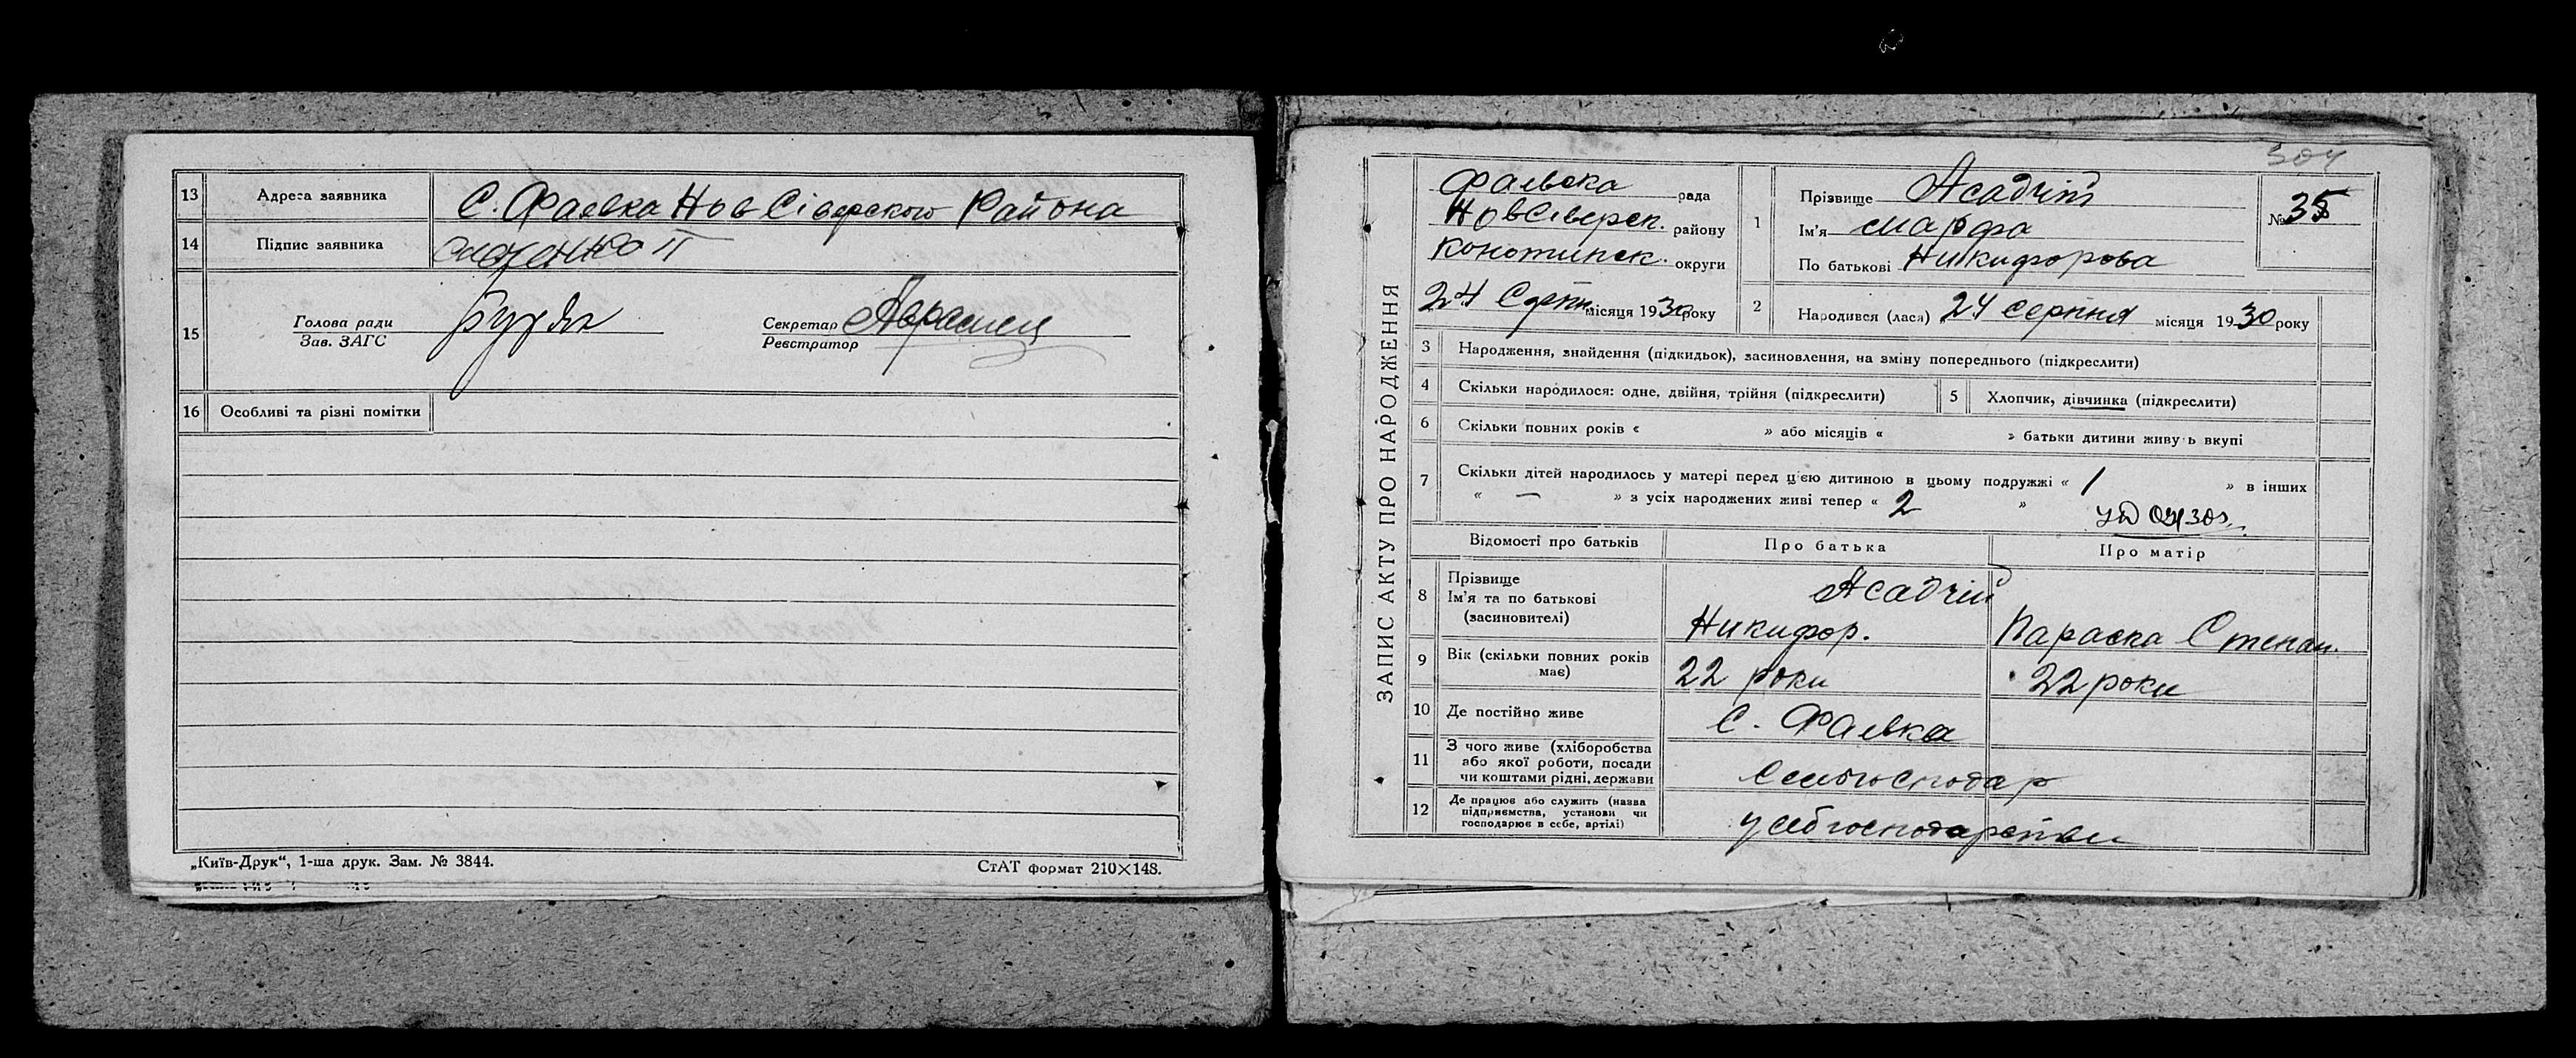 13 Адреса заявника С. Фаевка Нов Сіверского Района
14 Підпис заявника
15 Голова ради
Зав. ЗАГС
Секретар
Реєстратор
16 Особливі та різні помітки
„Київ-Друк“, 1-ша друк. Зам. № 3844.
СтАТ формат 210×148.
304
ЗАПИС АКТУ ПРО НАРОДЖЕННЯ
Фаевска рада
НовСіверск. району
Конотипск. округи
24 Серпн місяця 1930 року
1 Прізвище Асадчій
Ім'я Марфа
По батькові Никифорова
№ 35
2 Народився (лася) 24 серпня місяця 1930 року
3 Народження, знайдення (підкидьок), засиновлення, на зміну попереднього (підкреслити)
4 Скільки народилося: одне, двійня, трійня (підкреслити)
5 Хлопчик, дівчинка (підкреслити)
6 Скільки повних років « » або місяців « » батьки дитини живуть вкупі
7 Скільки дітей народилось у матері перед ц'єю дитиною в цьому подружжі « 1 » в інших
« — » з усіх народжених живі тепер « 2 »
Відомості про батьків Про батька Про матір
8 Прізвище
Ім'я та по батькові
(засиновителі)
Асадчій
Никифор. Параска Степан.
9 Вік (скільки повних років має) 22 роки 22 роки
10 Де постійно живе С. Фаевка
11 З чого живе (хліборобства
або якої роботи, посади
чи коштами рідні, держави
12 Де працює або служить (назва
підприємства, установи чи
господарює в себе, артілі)